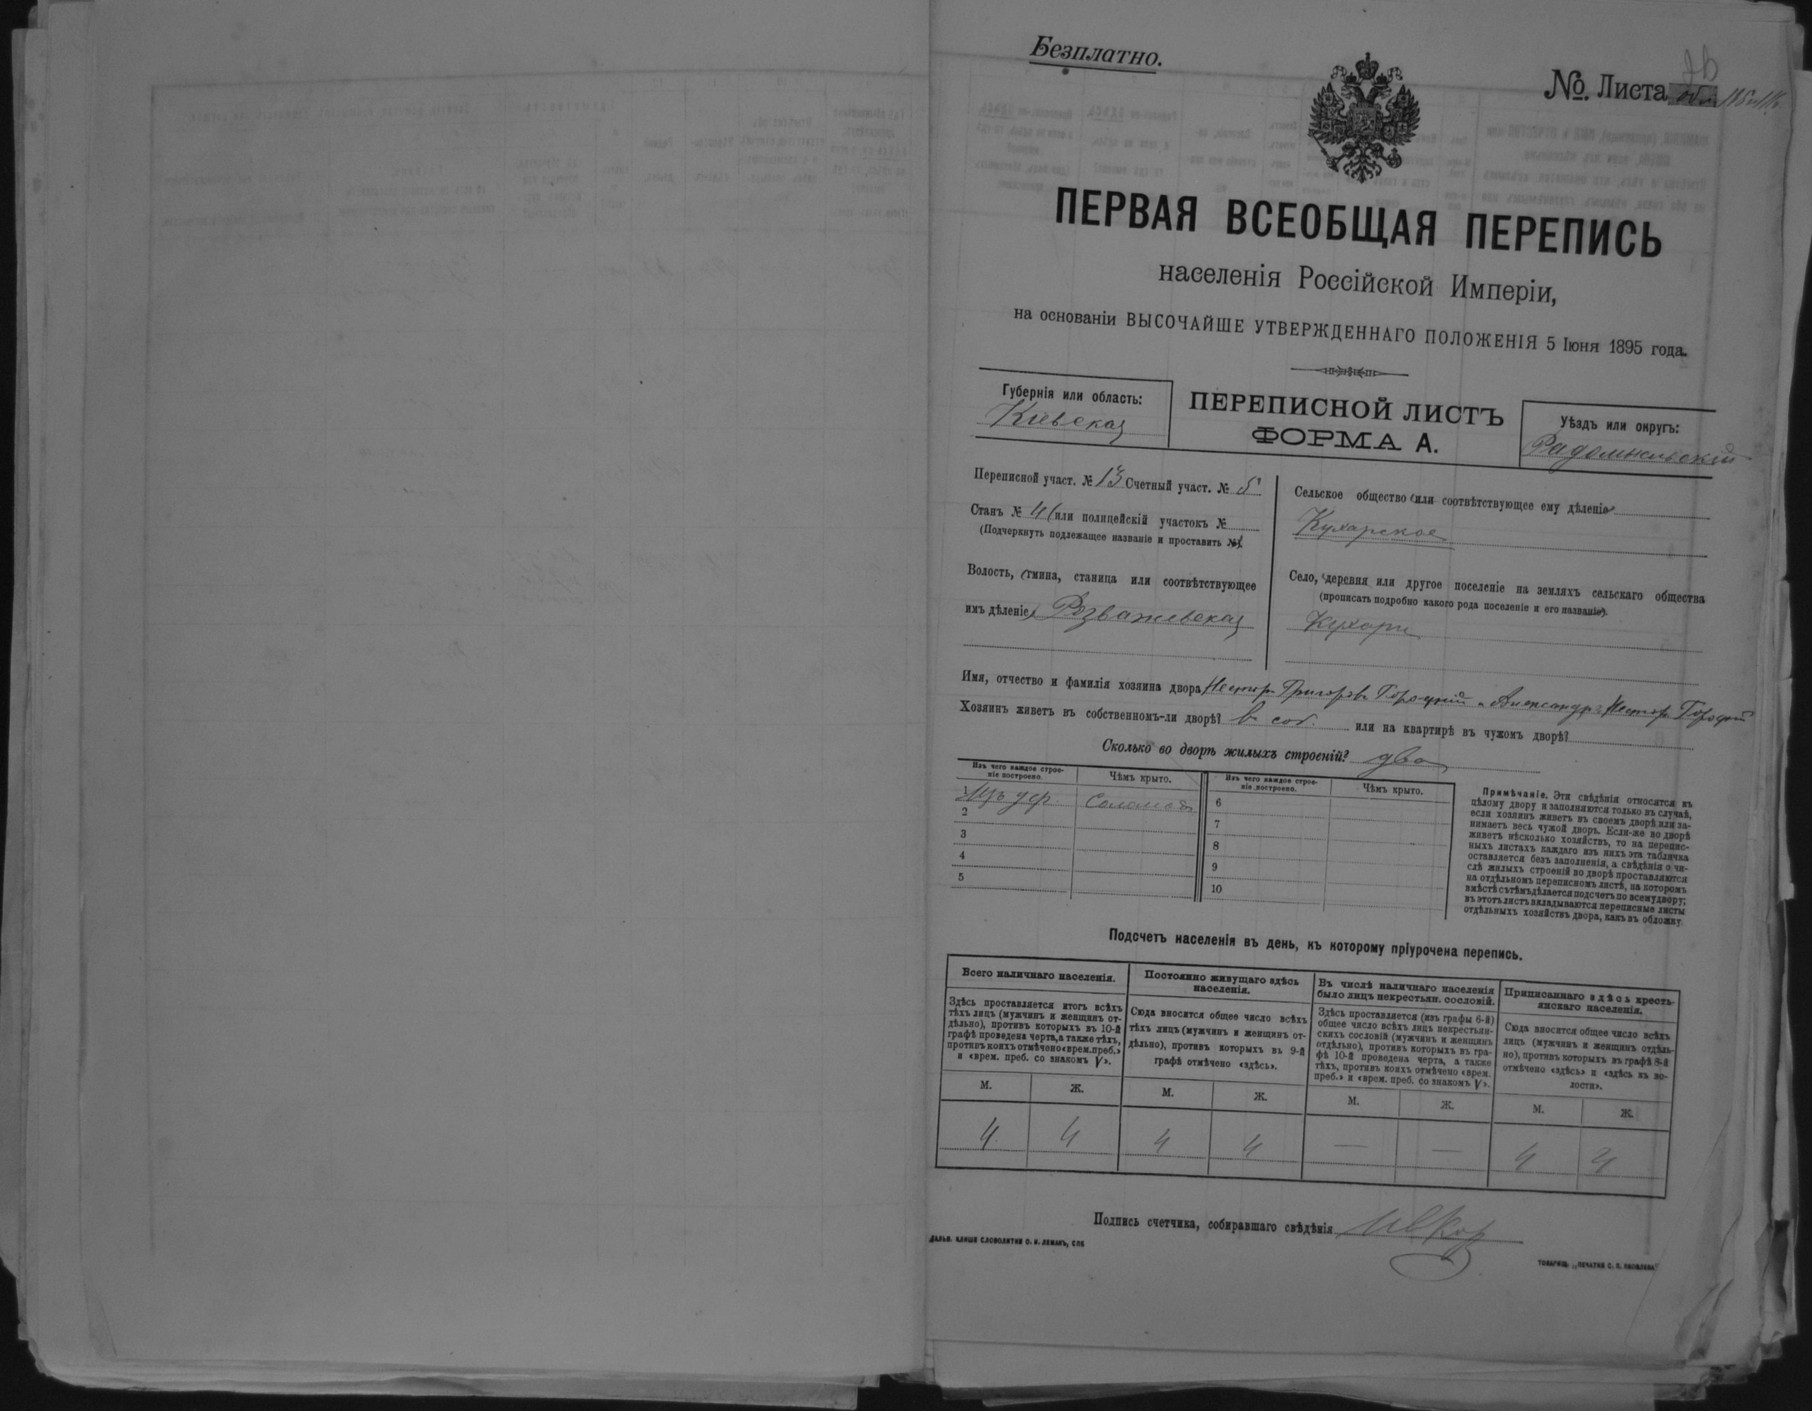 Безплатно.
№ Листа
ПЕРВАЯ ВСЕОБЩАЯ ПЕРЕПИСЬ
населенія Россійской Имперіи,
на основаніи ВЫСОЧАЙШЕ УТВЕРЖДЕННАГО ПОЛОЖЕНІЯ 5 Іюня 1895 года.
Губернія или область:
Кіевская
ПЕРЕПИСНОЙ ЛИСТЪ
ФОРМА А.
Уѣздъ или округъ:
Радомысльскій
Переписной участ. № 13 Счетный участ. № 5
Станъ № 4 или полицейскій участокъ №
(Подчеркнуть подлежащее названіе и проставить №).
Волость, гмина, станица или соотвѣтствующее
имъ дѣленіе Розважевская
Сельское общество (или соотвѣтствующее ему дѣленіе)
Кухарское
Село, деревня или другое поселеніе на земляхъ сельскаго общества
(прописать подробно какого рода поселеніе и его названіе).
Кухари
Имя, отчество и фамилія хозяина двора Нестор Григоров Городній и Александръ Нестор Городній
Хозяинъ живетъ въ собственномъ-ли дворѣ? в соб. или на квартирѣ въ чужомъ дворѣ?
Сколько во дворѣ жилыхъ строеній? два
Изъ чего каждое строе-
ніе построено.
Чѣмъ крыто.
Изъ чего каждое строе-
ніе построено.
Чѣмъ крыто.
1 Изъ дер. Соломой 6
2 7
3 8
4 9
5 10
Примѣчаніе. Эти свѣдѣнія относятся къ
цѣлому двору и заполняются только въ случаѣ,
если хозяинъ живетъ въ своемъ дворѣ или за-
нимаетъ весь чужой дворъ. Если-же во дворѣ
живетъ нѣсколько хозяйствъ, то на перепис-
ныхъ листахъ каждаго изъ нихъ эта табличка
оставляется безъ заполненія, а свѣдѣнія о чи-
слѣ жилыхъ строеній во дворѣ проставляются
на отдѣльномъ переписномъ листѣ, на которомъ
вмѣстѣ съ тѣмъ дѣлается подсчетъ по всему двору;
въ этотъ листъ вкладываются переписные листы
отдѣльныхъ хозяйствъ двора, какъ въ обложку.
Подсчетъ населенія въ день, къ которому пріурочена перепись.
Всего наличнаго населенія.
Здѣсь проставляется итогъ всѣхъ
тѣхъ лицъ (мужчинъ и женщинъ от-
дѣльно), противъ которыхъ въ 10-й
графѣ проведена черта, а также тѣхъ,
противъ коихъ отмѣчено «врем. преб.»
и «врем. преб. со знакомъ V».
Постоянно живущаго здѣсь
населенія.
Сюда вносится общее число всѣхъ
тѣхъ лицъ (мужчинъ и женщинъ от-
дѣльно), противъ которыхъ въ 9-й
графѣ отмѣчено «здѣсь».
Въ числѣ наличнаго населенія
было лицъ некрестьян. сословій.
Здѣсь проставляется (изъ графы 6-й)
общее число всѣхъ лицъ некрестьян-
скихъ сословій (мужчинъ и женщинъ
отдѣльно), противъ которыхъ въ гра-
фѣ 10-й проведена черта, а также
тѣхъ, противъ коихъ отмѣчено «врем.
преб.» и «врем. преб. со знакомъ V».
Приписаннаго здѣсь кресть-
янскаго населенія.
Сюда вносится общее число всѣхъ
лицъ (мужчинъ и женщинъ отдѣль-
но), противъ которыхъ въ графѣ 8-й
отмѣчено «здѣсь» и «здѣсь въ во-
лости».
М. Ж. М. Ж. М. Ж. М. Ж.
4 4 4 4 — — 4 4
Подпись счетчика, собиравшаго свѣдѣнія